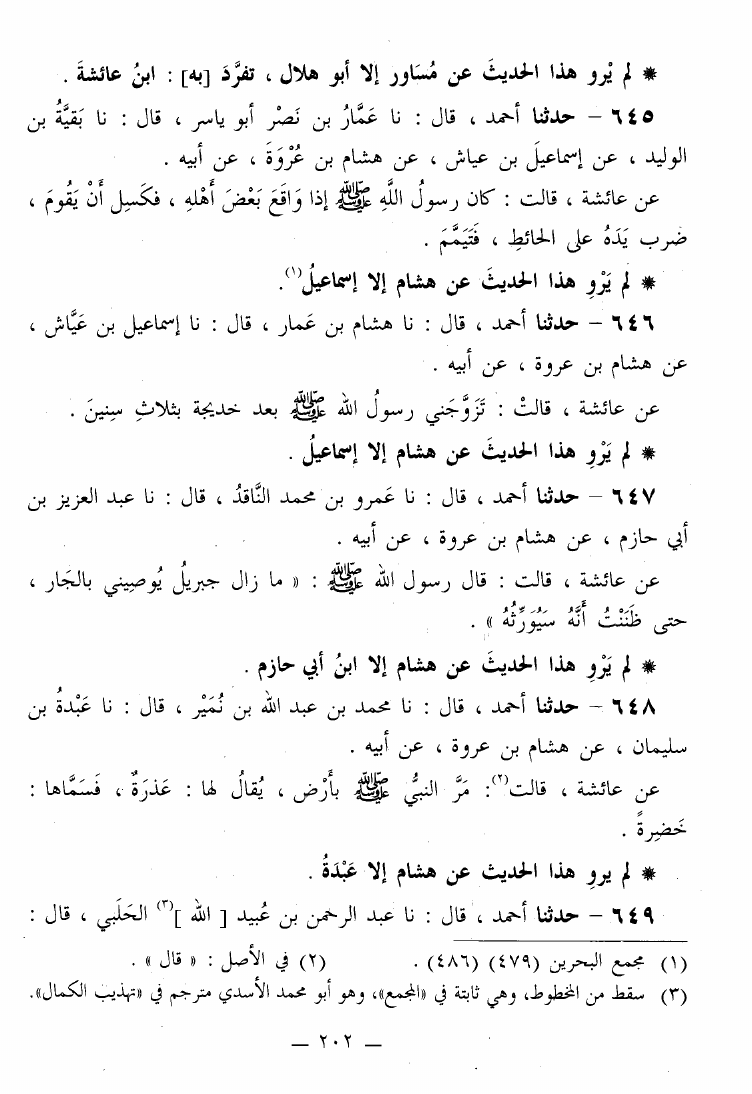 * لم يْرو هذا الحديثَ عن مُسَاور إلا أبو هلال ، تفرَّدَ [به] : ابنُ عائشةَ .
٦٤٥ – حدثنا أحمد ، قال : نا عَمَّارُ بن نَصْر أبو ياسر ، قال : نا بَقيَّةُ بن
الوليد ، عن إسماعيلَ بن عياش ، عن هشام بن عُرْوَةَ ، عن أبيه .
عن عائشة ، قالت : كان رسولُ اللَّهِ ﷺ إذا وَاقَعَ بَعْضَ أَهْلهِ ، فكَسِل أَنْ يَقُومَ ،
ضرب يَدَهُ على الحائطِ ، فَتَيَمَّمَ .
* لم يَرْوِ هذا الحديثَ عن هشام إلا إسماعيلُ(١).
٦٤٦ – حدثنا أحمد ، قال : نا هشام بن عمار ، قال : نا إسماعيل بن عَيَّاش ،
عن هشام بن عروة ، عن أبيه .
عن عائشة ، قالتْ : تَزَوَّجَني رسولُ الله ﷺ بعد خديجة بثلاثِ سِنينَ .
* لم يَرْوِ هذا الحديثَ عن هشام إلا إسماعيلُ .
٦٤٧ – حدثنا أحمد ، قال : نا عَمرو بن محمد النَّاقدُ ، قال : نا عبد العزيز بن
أبي حازم ، عن هشام بن عروة ، عن أبيه .
عن عائشة ، قالت : قال رسول الله ﷺ : « ما زال جبريلُ يُوصِيني بالجَار ،
حتى ظَنَنْتُ أَنَّهُ سَيُوَرِّثُهُ » .
* لم يَرْوِ هذا الحديثَ عن هشام إلا ابنُ أبي حازم .
٦٤٨ – حدثنا أحمد ، قال : نا محمد بن عبد الله بن نُمَيْر ، قال : نا عَبْدةُ بن
سليمان ، عن هشام بن عروة ، عن أبيه .
عن عائشة ، قالت(٢): مَرَّ النبيُّ ﷺ بأَرْض ، يُقالُ لها : عَذرَةٌ ، فَسَمَّاها :
خَضرِةً .
* لم يرو هذا الحديث عن هشام إلا عَبْدَةُ .
٦٤٩ – حدثنا أحمد ، قال : نا عبد الرحمن بن عُبيد [ الله ](٣) الحَلَبي ، قال :
(١) مجمع البحرين (٤٧٩) (٤٨٦) . (٢) في الأصل : « قال » .
(٣) سقط من المخطوط، وهي ثابتة في «المجمع»، وهو أبو محمد الأسدي مترجم في «تهذيب الكمال».
– ٢٠٢ –